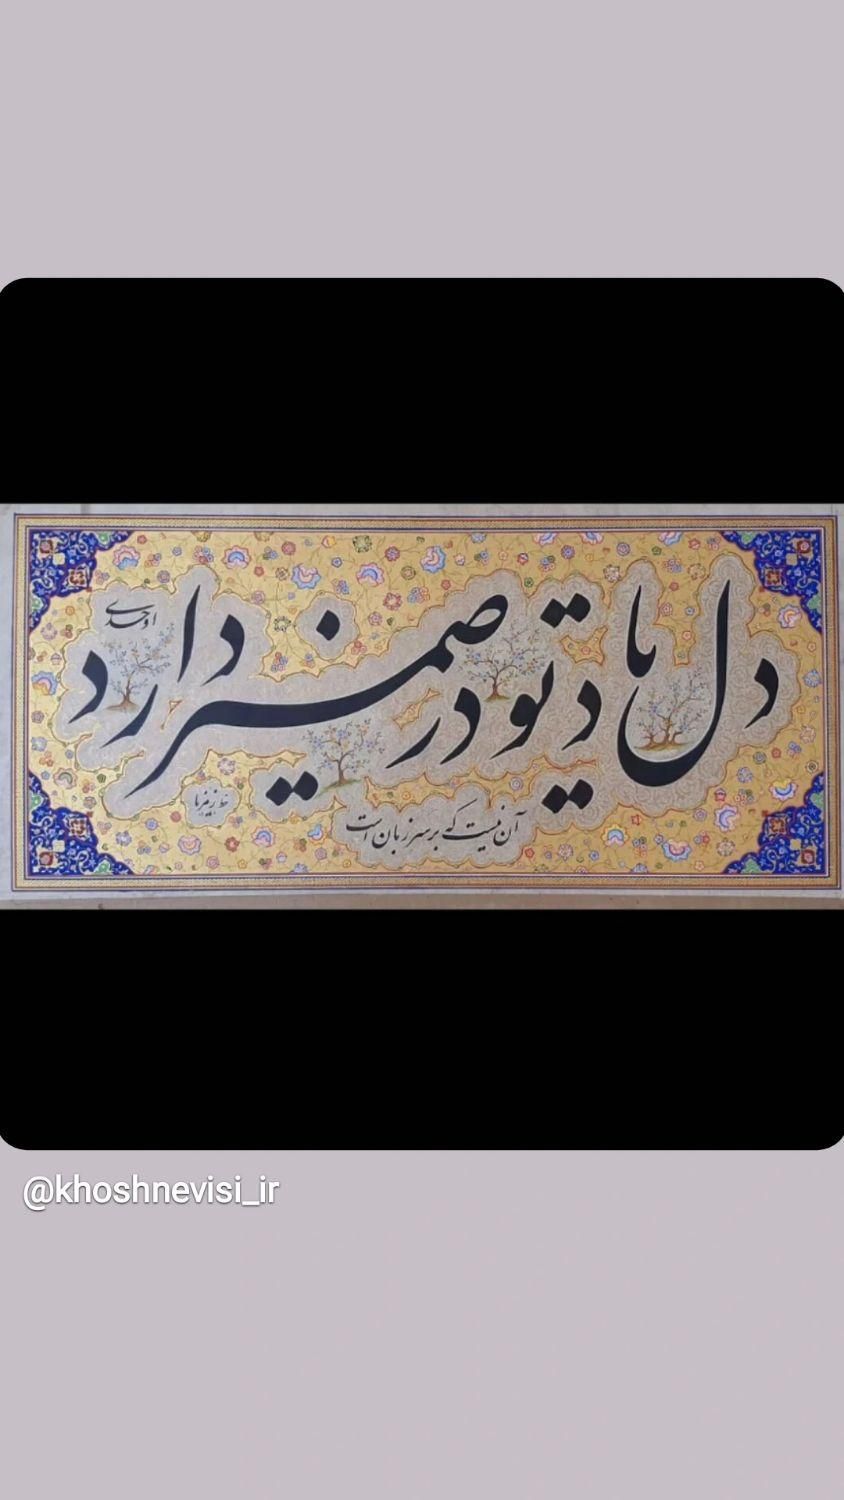 دل یاد تو در ضمیر دارد
اوحدی
آن نیست که بر سر زبان است
خط
@khoshnevisi_ir